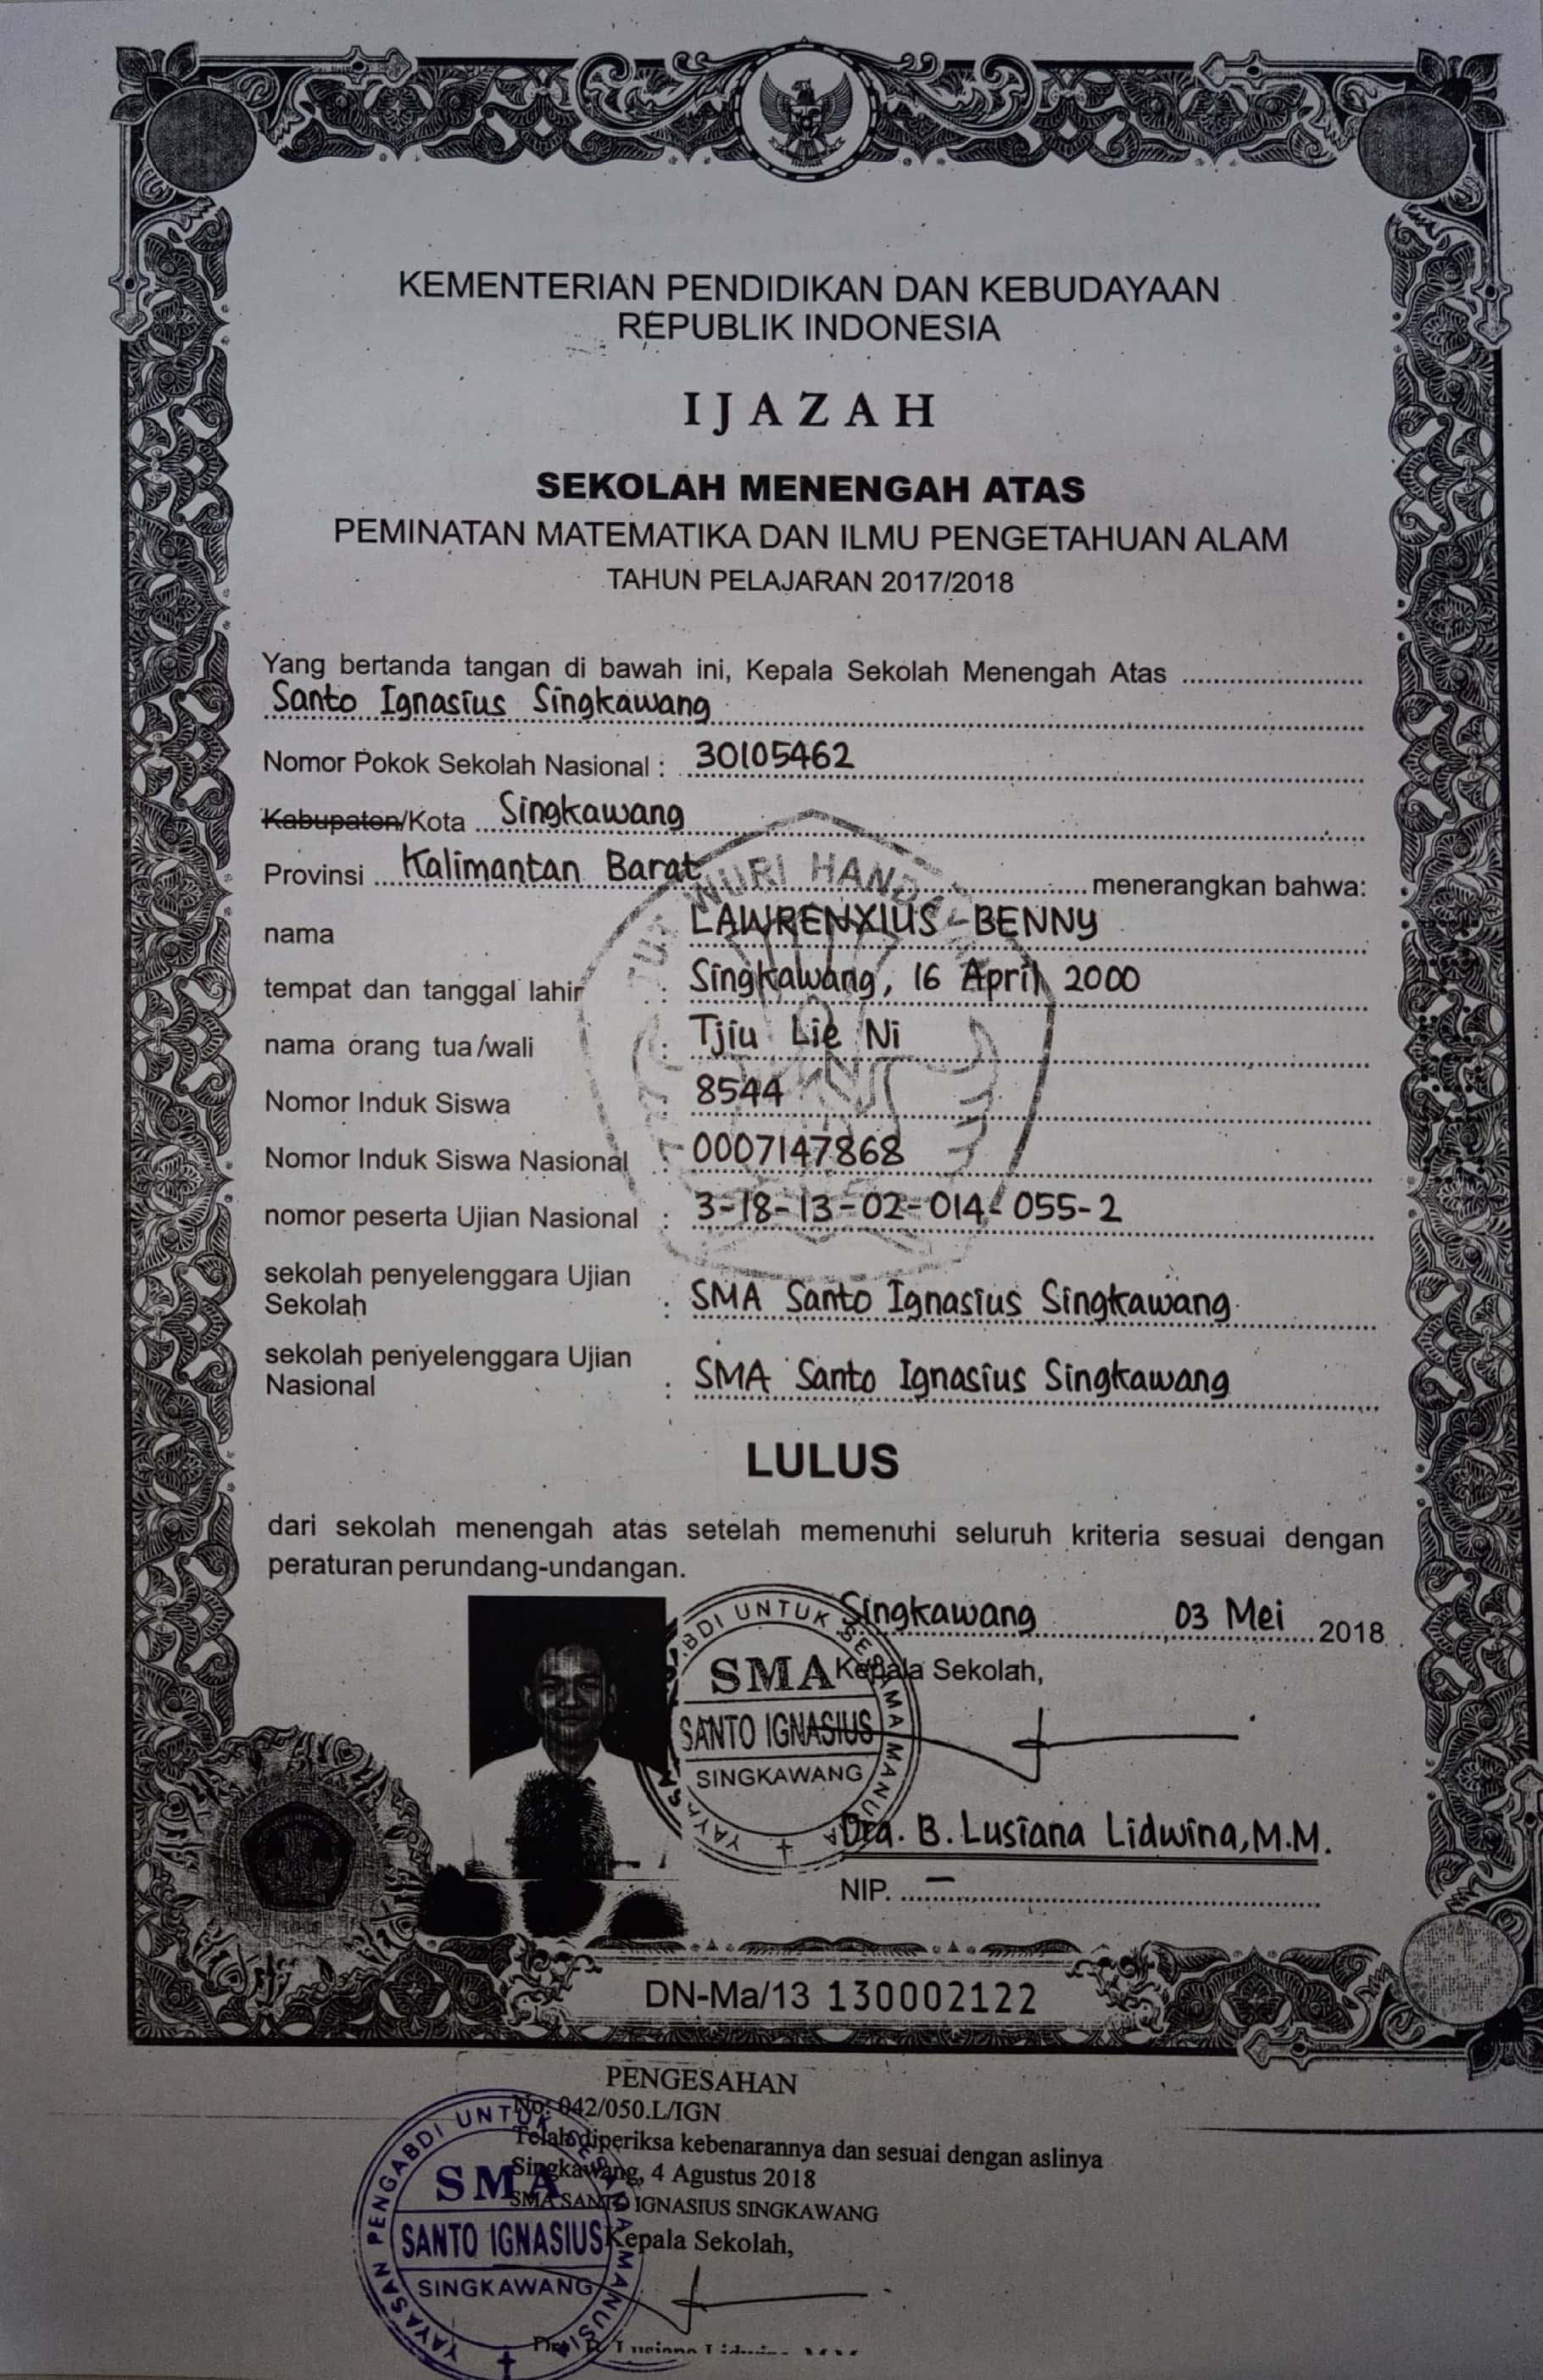 KEMENTERIAN PENDIDIKAN DAN KEBUDAYAAN
REPUBLIK INDONESIA
IJAZAH
SEKOLAH MENENGAH ATAS
PEMINATAN MATEMATIKA DAN ILMU PENGETAHUAN ALAM
TAHUN PELAJARAN 2017/2018
Yang bertanda tangan di bawah ini, Kepala Sekolah Menengah Atas
Santo Ignasius Singkawang
Nomor Pokok Sekolah Nasional : 30105462
Kabupaten/Kota Singkawang
Provinsi Kalimantan Barat menerangkan bahwa:
nama LAWRENXIUS BENNY
tempat dan tanggal lahir : Singkawang, 16 April 2000
nama orang tua/wali : Tjiu Lie Ni
Nomor Induk Siswa : 8544
Nomor Induk Siswa Nasional : 0007147868
nomor peserta Ujian Nasional : 3-18-13-02-014-055-2
sekolah penyelenggara Ujian
Sekolah : SMA Santo Ignasius Singkawang
sekolah penyelenggara Ujian
Nasional : SMA Santo Ignasius Singkawang
LULUS
dari sekolah menengah atas setelah memenuhi seluruh kriteria sesuai dengan
peraturan perundang-undangan.
Singkawang, 03 Mei 2018
Kepala Sekolah,
SMA
SANTO IGNASIUS
SINGKAWANG
Dra. B. Lusiana Lidwina, M.M.
NIP. –
DN-Ma/13 130002122
PENGESAHAN
No: 042/050.L/IGN
Telah diperiksa kebenarannya dan sesuai dengan aslinya
Singkawang, 4 Agustus 2018
SMA SANTO IGNASIUS SINGKAWANG
Kepala Sekolah,
YAYASAN PENGABDI UNTUK SESAMA MANUSIA
SMA
SANTO IGNASIUS
SINGKAWANG
Dra. B. Lusiana Lidwina, M.M.